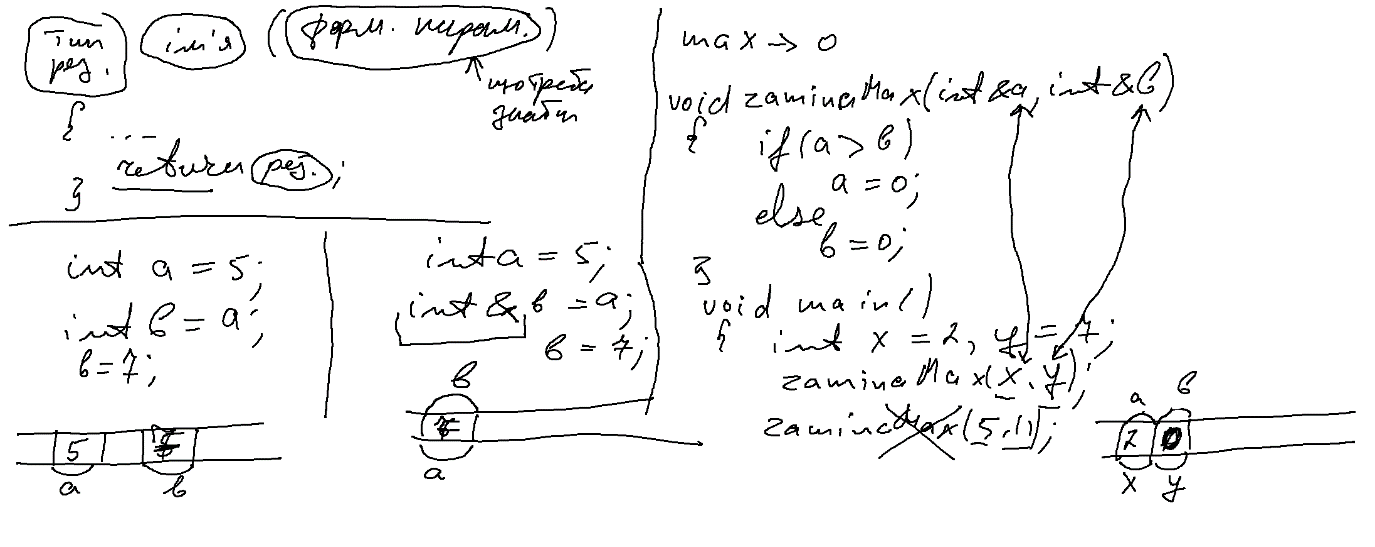 тип рез. ім'я (форм. парам.)
що треба
знати
{
...
return рез.;
}
int a = 5;
int b = a;
b = 7;
5
a b
int a = 5;
int & b = a;
b = 7;
b
7
a
max → 0
void zaminaMax(int &a, int &b)
{
if(a > b)
a = 0;
else
b = 0;
}
void main()
{
int x = 2, y = 7;
zaminaMax(x, y);
zaminaMax(5, 11);
a b
2 0
x y